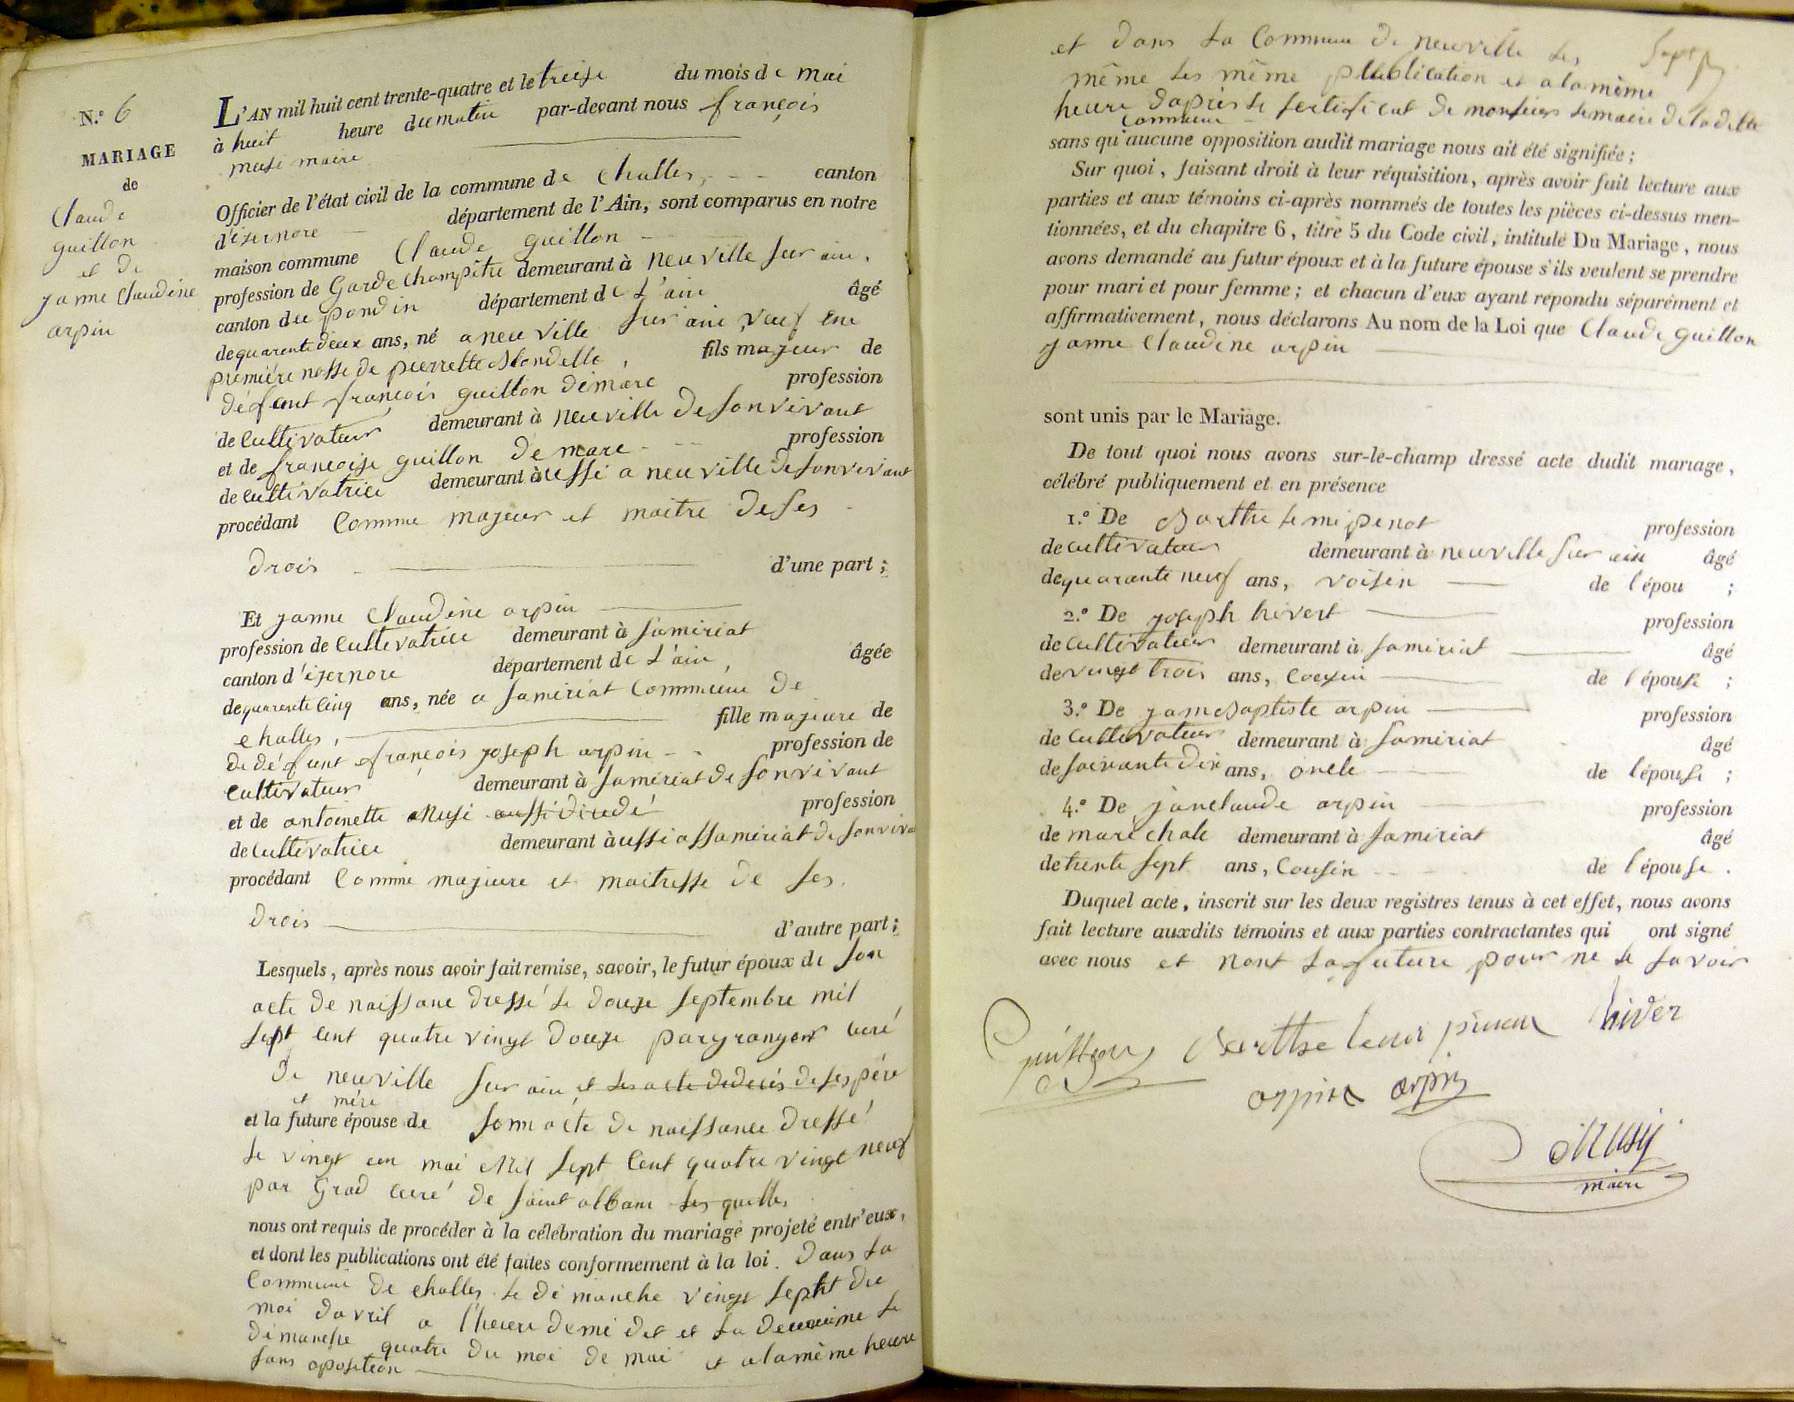 N.º 6
MARIAGE
de
Claude
guillon
et de
janne Claudine
arpin
L'AN mil huit cent trente-quatre et le treise du mois de mai
à huit heure du matin par-devant nous françois
musi maire
Officier de l'état civil de la commune de Challes, canton
d'isernore département de l'Ain, sont comparus en notre
maison commune Claude guillon
profession de Garde Champêtre demeurant à neuville sur ain,
canton du pondin département de L'ain âgé
de quarente deux ans, né a neuville sur ain veuf en
première nosse de pierrette Blondelle, fils majeur de
défeunt françois guillon démare profession
de Cultivateur demeurant à neuville de son vivant
et de françoise guillon demare profession
de Cultivatrice demeurant à ussi a neuville de son vivant
procédant Comme majeur et maitre de ses
drois d'une part ;
Et janne Claudine arpin
profession de Cultivatrice demeurant à samériat
canton d'isernore département de L'ain, âgée
de quarente cinq ans, née a samériat Commune de
challes, fille majeure de
de défunt françois joseph arpin profession de
Cultivateur demeurant à samériat de son vivant
et de antoinette Musi aussi décédé profession
de Cultivatrice demeurant à ussi a Samériat de son viva
procédant Comme majeure et maitresse de ses
drois d'autre part ;
Lesquels, après nous avoir fait remise, savoir, le futur époux de son
acte de naissance dressé le douze septembre mil
sept cent quatre vingt douze par grangeon curé
de neuville sur ain, et les acte de decés de ses pére
et mére
et la future épouse de son acte de naissance dressé
le vingt un mai Mil sept Cent quatre vingt neuf
par Grad curé de saint alban les quelles
nous ont requis de procéder à la célébration du mariage projeté entr'eux,
et dont les publications ont été faites conformement à la loi. dans la
Commune de challes le dimanche vingt septt du
moi davril a l'heure demidit et la deuxieme le
dimanche quatre du moi de mai et a la même heure
sans oposition
et dans la Commune de neuville les
même les même publication et a la même
heure daprès le sertificat de monsieur le maire de la dette
Commune
sans qu'aucune opposition audit mariage nous ait été signifiée ;
Sur quoi, faisant droit à leur réquisition, après avoir fait lecture aux
parties et aux témoins ci-après nommés de toutes les pièces ci-dessus men-
tionnées, et du chapitre 6, titre 5 du Code civil, intitulé Du Mariage, nous
avons demandé au futur époux et à la future épouse s'ils veulent se prendre
pour mari et pour femme ; et chacun d'eux ayant répondu séparément et
affirmativement, nous déclarons Au nom de la Loi que Claude guillon
janne Claudine arpin
sont unis par le Mariage.
De tout quoi nous avons sur-le-champ dressé acte dudit mariage,
célébré publiquement et en présence
1.º De Barthelemi penot profession
de cultivateur demeurant à neuville sur ain âgé
de quarante neuf ans, voisin de l'épou ;
2.º De joseph hivert profession
de Cultivateur demeurant à samériat âgé
de vingt trois ans, Cousin de l'épouse ;
3.º De jamBaptiste arpin profession
de Cultivateur demeurant à samériat âgé
de soixante dix ans, oncle de l'épouse ;
4.º De janclaude arpin profession
de maréchale demeurant à samériat âgé
de trente sept ans, Cousin de l'épouse.
Duquel acte, inscrit sur les deux registres tenus à cet effet, nous avons
fait lecture auxdits témoins et aux parties contractantes qui ont signé
avec nous et nont la future pour ne le savoir
Guillon Barthelemi penot hiver
arpin arpin
Musy
maire